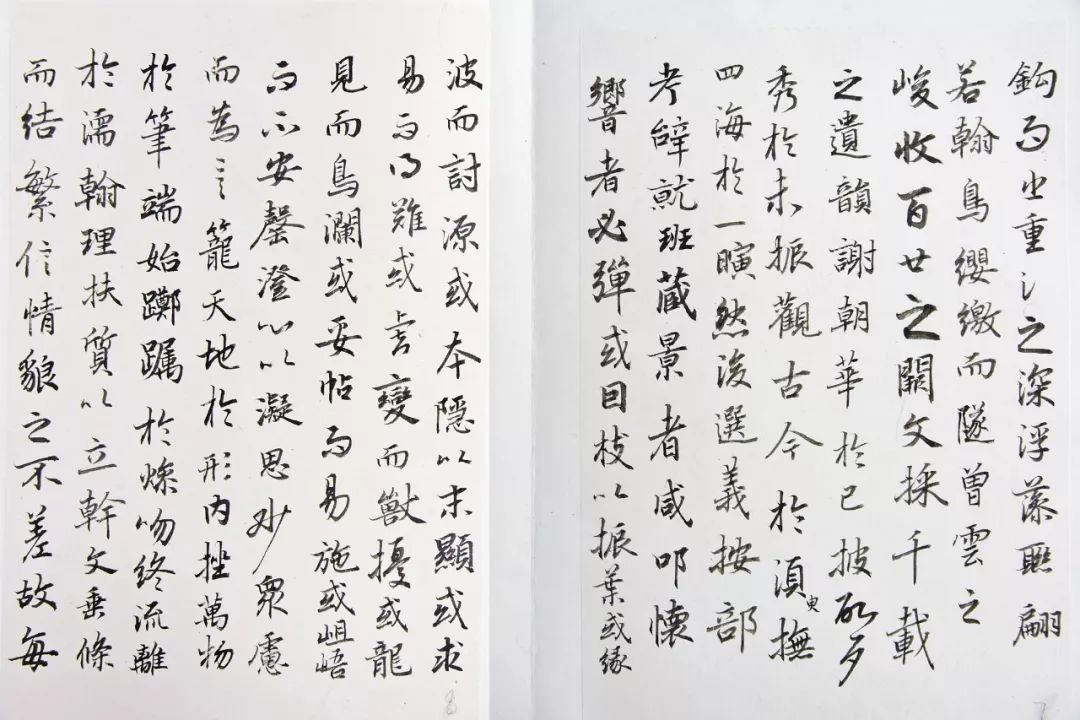 鈎而出重氵之深浮藻聯翩
若翰鳥纓繳而隧曾雲之
峻收百世之闕文採千載
之遺韻謝朝華於已披啓夕
秀於未振觀古今於須臾撫
四海於一瞚然後選義按部
考辭就班藏景者咸叩懷
響者必彈或因枝以振葉或緣
7
波而討源或本隱以末顯或求
易而得難或虎變而獸擾或龍
見而鳥瀾或妥帖而易施或岨峿
而不安罄澄心以凝思妙衆慮
而為言籠天地於形內挫萬物
於筆端始躑躅於燥吻終流離
於濡翰理扶質以立幹文垂條
而結繁信情貌之不差故每
8